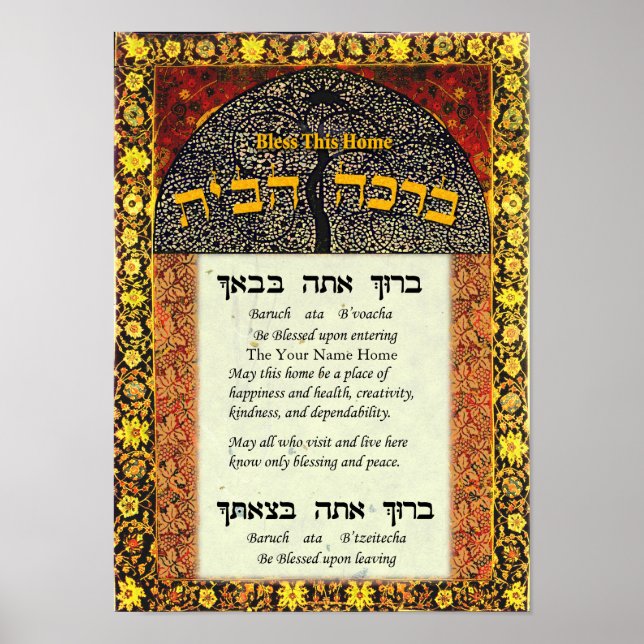 Bless This Home
ברכה הבית
ברוך אתה בבאך
Baruch ata B'voacha
Be Blessed upon entering
The Your Name Home
May this home be a place of
happiness and health, creativity,
kindness, and dependability.
May all who visit and live here
know only blessing and peace.
ברוך אתה בצאתך
Baruch ata B'tzeitecha
Be Blessed upon leaving